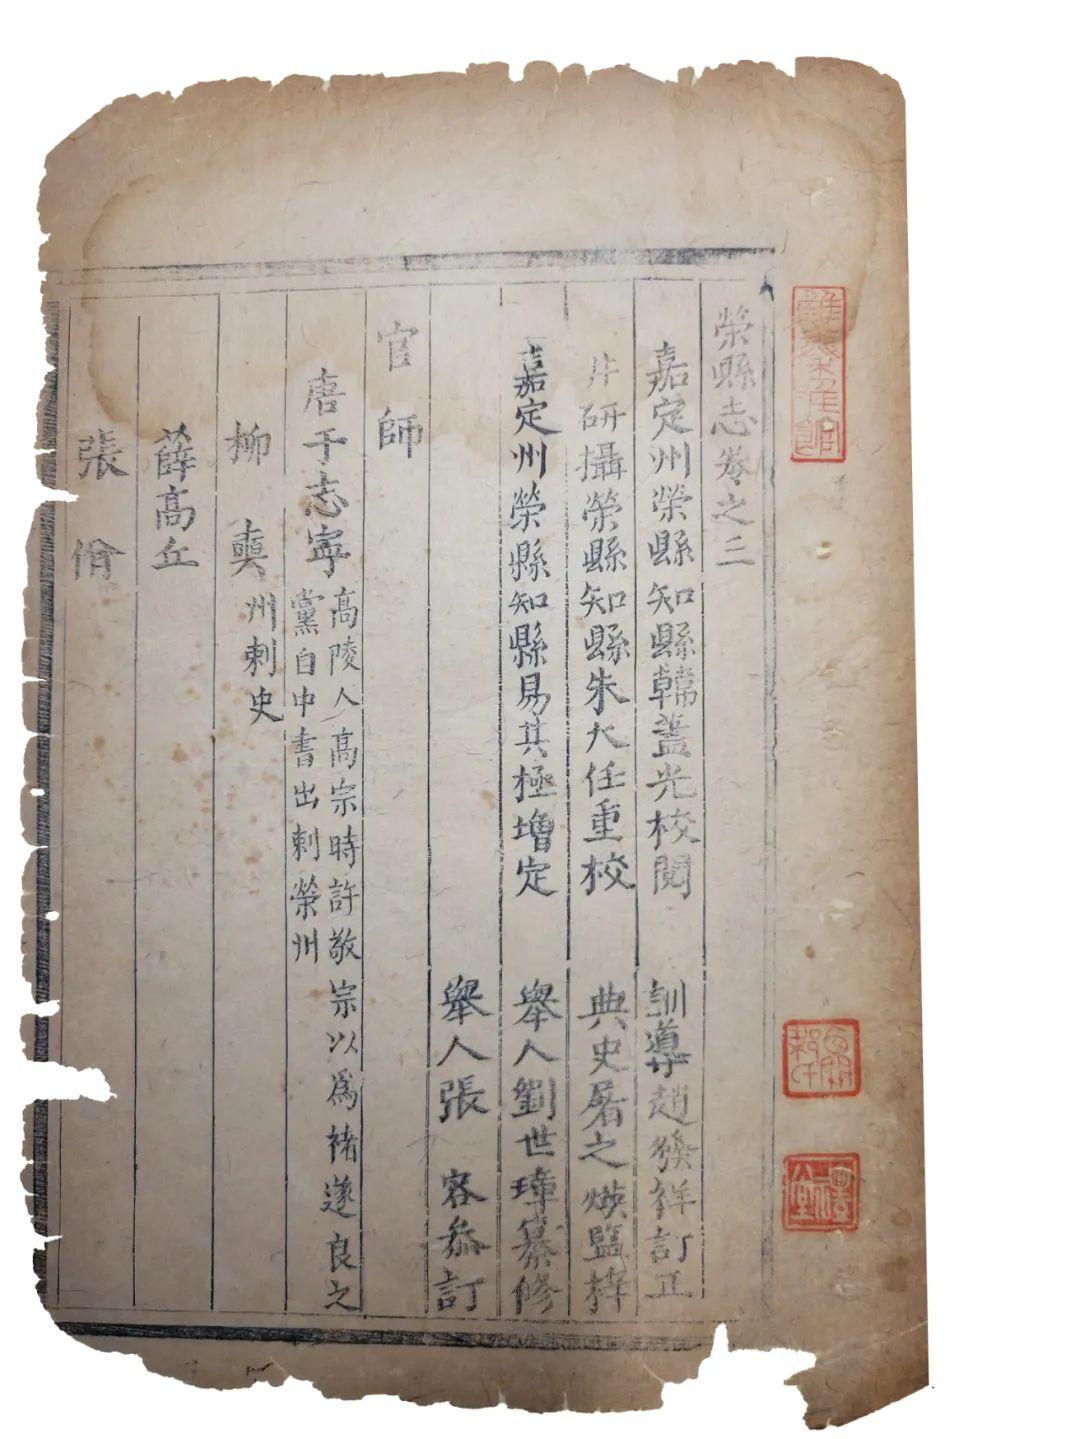 榮縣志卷之三
嘉定州榮縣知縣韓蓋光校閱 訓導趙發祥訂正
井研攝榮縣知縣朱大任重校 典史屠之煐監梓
嘉定州榮縣知縣易其極增定 舉人劉世璋纂修
舉人張 容叅訂
官師
唐于志寧 高陵人高宗時許敬宗以爲褚遂良之
黨自中書出刺榮州
柳 奭 州刺史
薛高丘
張 偷